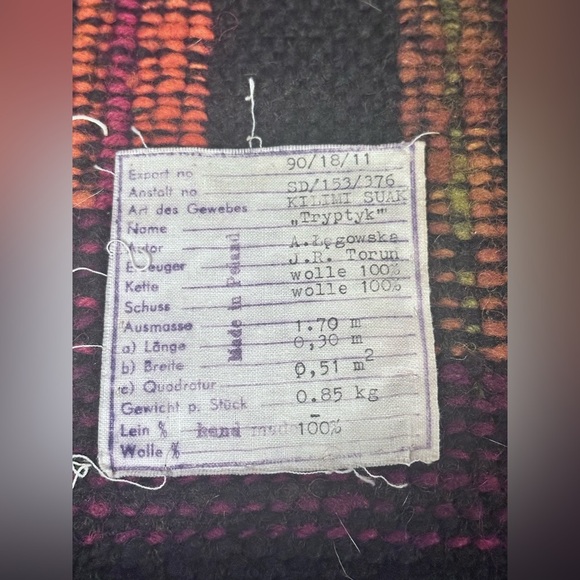 Export no 90/18/11
Anstalt no SD/153/376
Art des Gewebes KILIMI SUAK
Name „Tryptyk"
Autor A.Łęgowska
Erzeuger J.R. Torun
Kette wolle 100%
Schuss wolle 100%
Ausmasse
a) Länge 1.70 m
b) Breite 0,30 m
c) Quadratur 0,51 m²
Gewicht p. Stück 0.85 kg
Lein % -
Wolle % 100%
Made in Poland
hand made